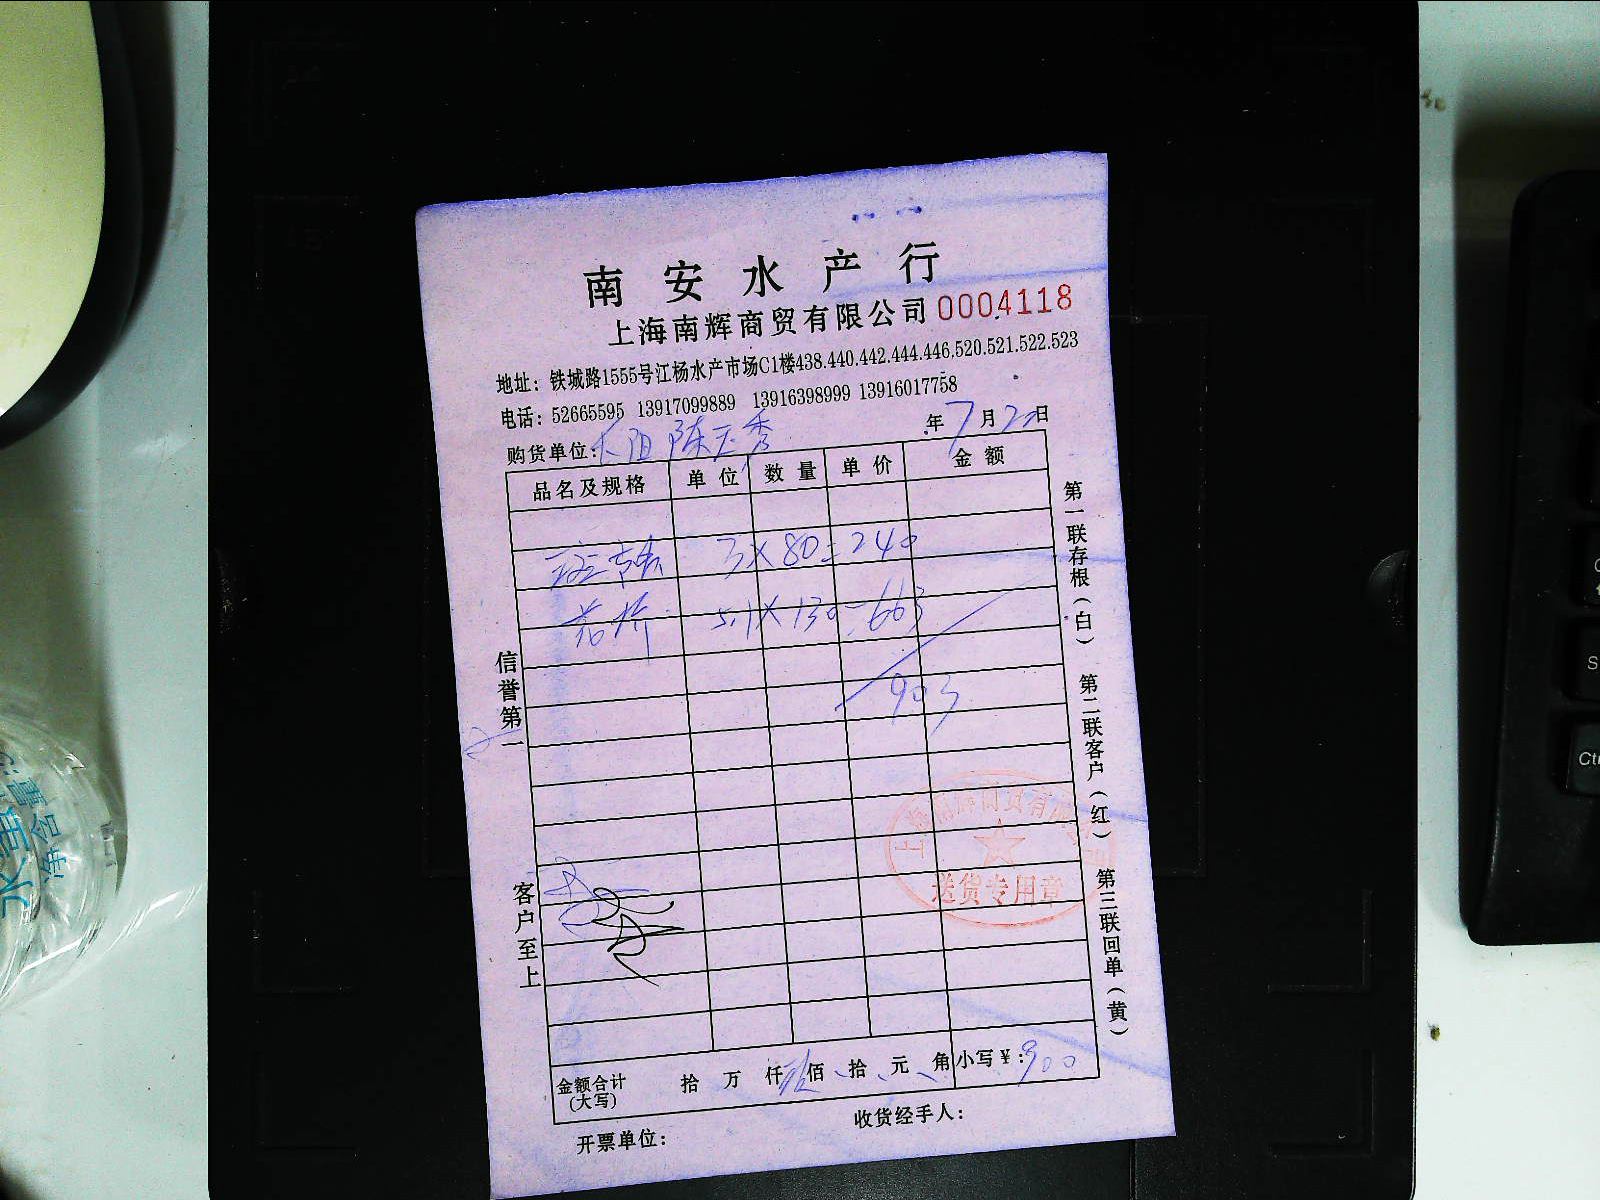 南安水产行
上海南辉商贸有限公司 0004118
地址：铁城路1555号江杨水产市场C1楼438.440.442.444.446.520.521.522.523
电话：52665595 13917099889 13916398999 13916017758
年7月20日
购货单位：陈玉秀
品名及规格 单位 数量 单价 金额
3×80=240
5.1×130=663
903
信誉第一
客户至上
第一联存根（白） 第二联客户（红） 第三联回单（黄）
上海南辉商贸有限公司
送货专用章
金额合计（大写） 拾 万 仟 佰 拾 元 角 小写¥：900
开票单位：
收货经手人：
水
净含量
Ctrl
S